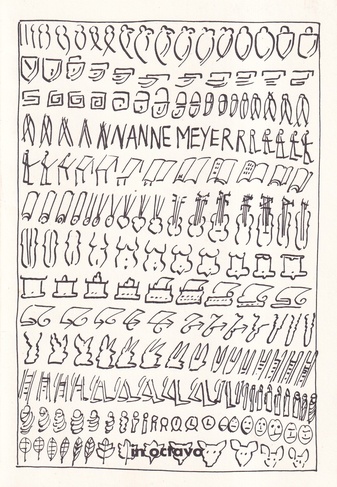 NANNE MEYER
in octavo